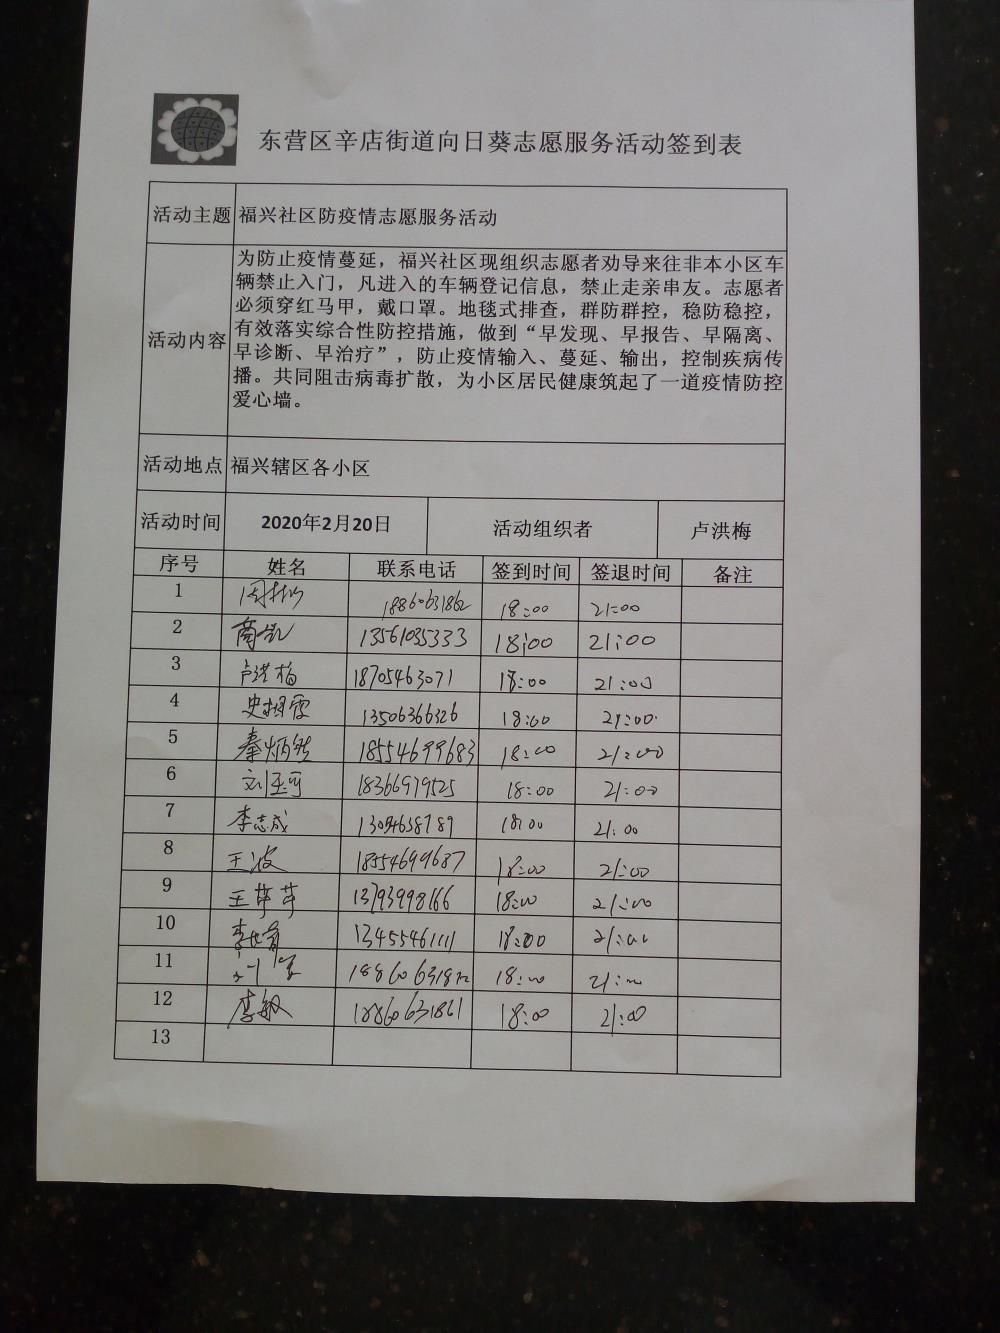 东营区辛店街道向日葵志愿服务活动签到表
活动主题 福兴社区防疫情志愿服务活动
活动内容
为防止疫情蔓延，福兴社区现组织志愿者劝导来往非本小区车
辆禁止入门，凡进入的车辆登记信息，禁止走亲串友。志愿者
必须穿红马甲，戴口罩。地毯式排查，群防群控，稳防稳控，
有效落实综合性防控措施，做到“早发现、早报告、早隔离、
早诊断、早治疗”，防止疫情输入、蔓延、输出，控制疾病传
播。共同阻击病毒扩散，为小区居民健康筑起了一道疫情防控
爱心墙。
活动地点 福兴辖区各小区
活动时间 2020年2月20日 活动组织者 卢洪梅
序号 姓名 联系电话 签到时间 签退时间 备注
1 18860631862 18:00 21:00
2 商凯 13561035333 18:00 21:00
3 卢洪梅 18705463071 18:00 21:00
4 13506366326 18:00 21:00
5 18554699683 18:00 21:00
6 刘玉可 18366979525 18:00 21:00
7 李志成 18:00 21:00
8 王波 18554699687 18:00 21:00
9 王萍萍 13793998166 18:00 21:00
10 13455461111 18:00 21:00
11 18:00 21:00
12 李敏 18860631861 18:00 21:00
13